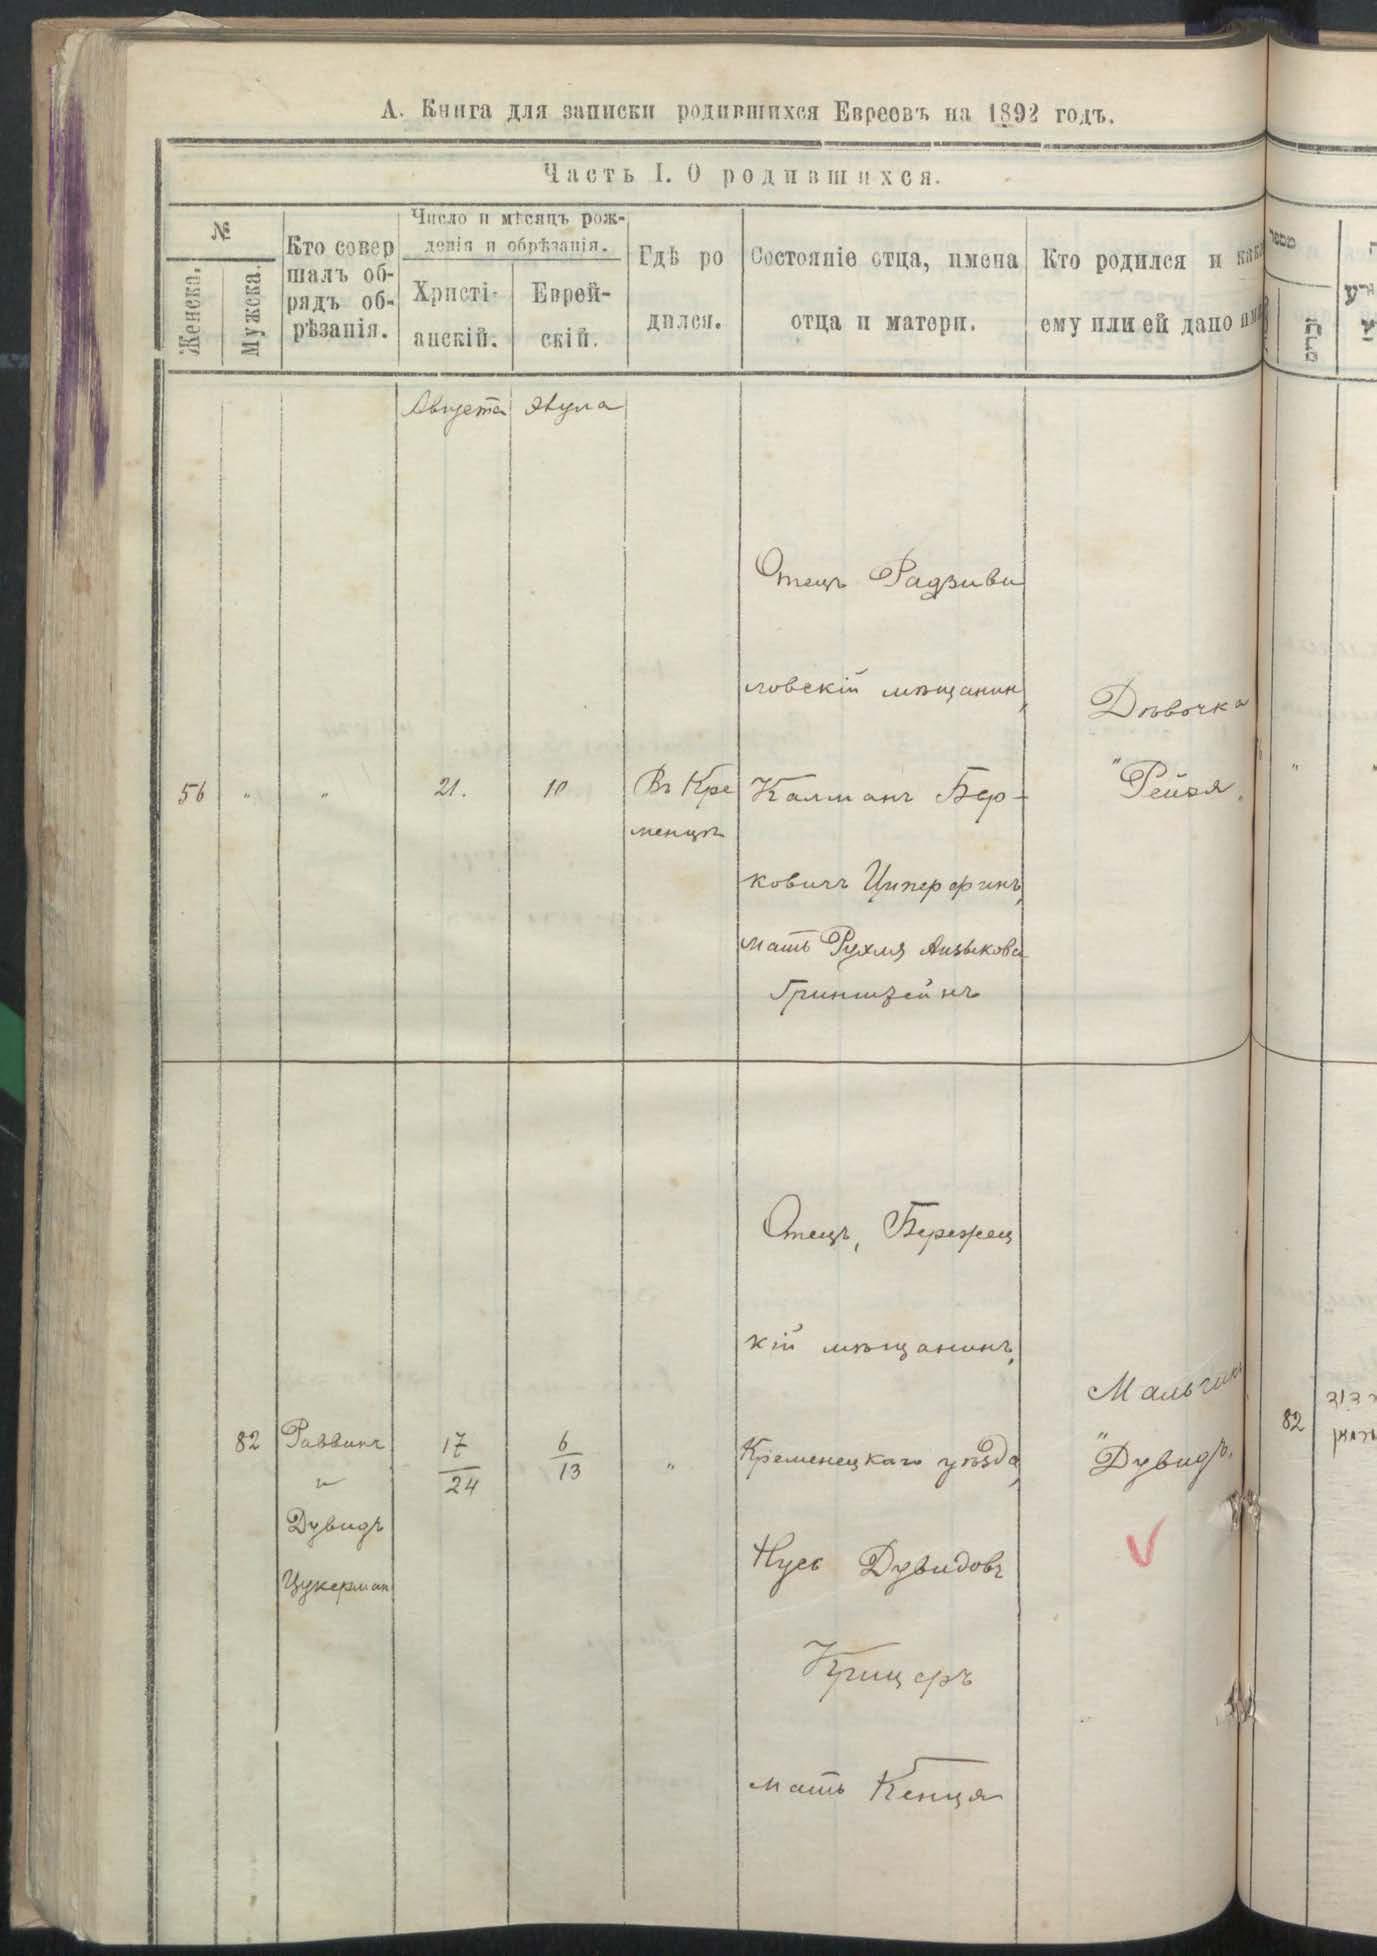 А. Книга для записки родившихся Евреевъ на 1892 годъ.
Часть I. О родившихся.
№
Женска.
Мужска.
Кто совер
шалъ об-
рядъ об-
рѣзанія.
Число и мѣсяцъ рож-
денія и обрѣзанія.
Христі-
анскій.
Еврей-
скій.
Гдѣ ро
дился.
Состояніе отца, имена
отца и матери.
Кто родился и
ему или ей дано
מספר
Августа
Элула
56
"
"
21.
10
Въ Кре
менцѣ
Отецъ Радзиви
ловскій мѣщанин,
Калманъ Бер-
ковичъ Ципер финъ,
мать Рухля Айзыкова
Гринштейнъ
Дѣвочка
"Рейзя,
"
82
Раввинъ
и
Дувидъ
Цукерман
17
24
6
13
"
Отецъ, Бережец
кій мѣщанинъ,
Кременецкаго уѣзда,
Нусь Дувидовъ
Крицеръ
мать Кенця
Мальчик
"Дувидъ,
82
דוד